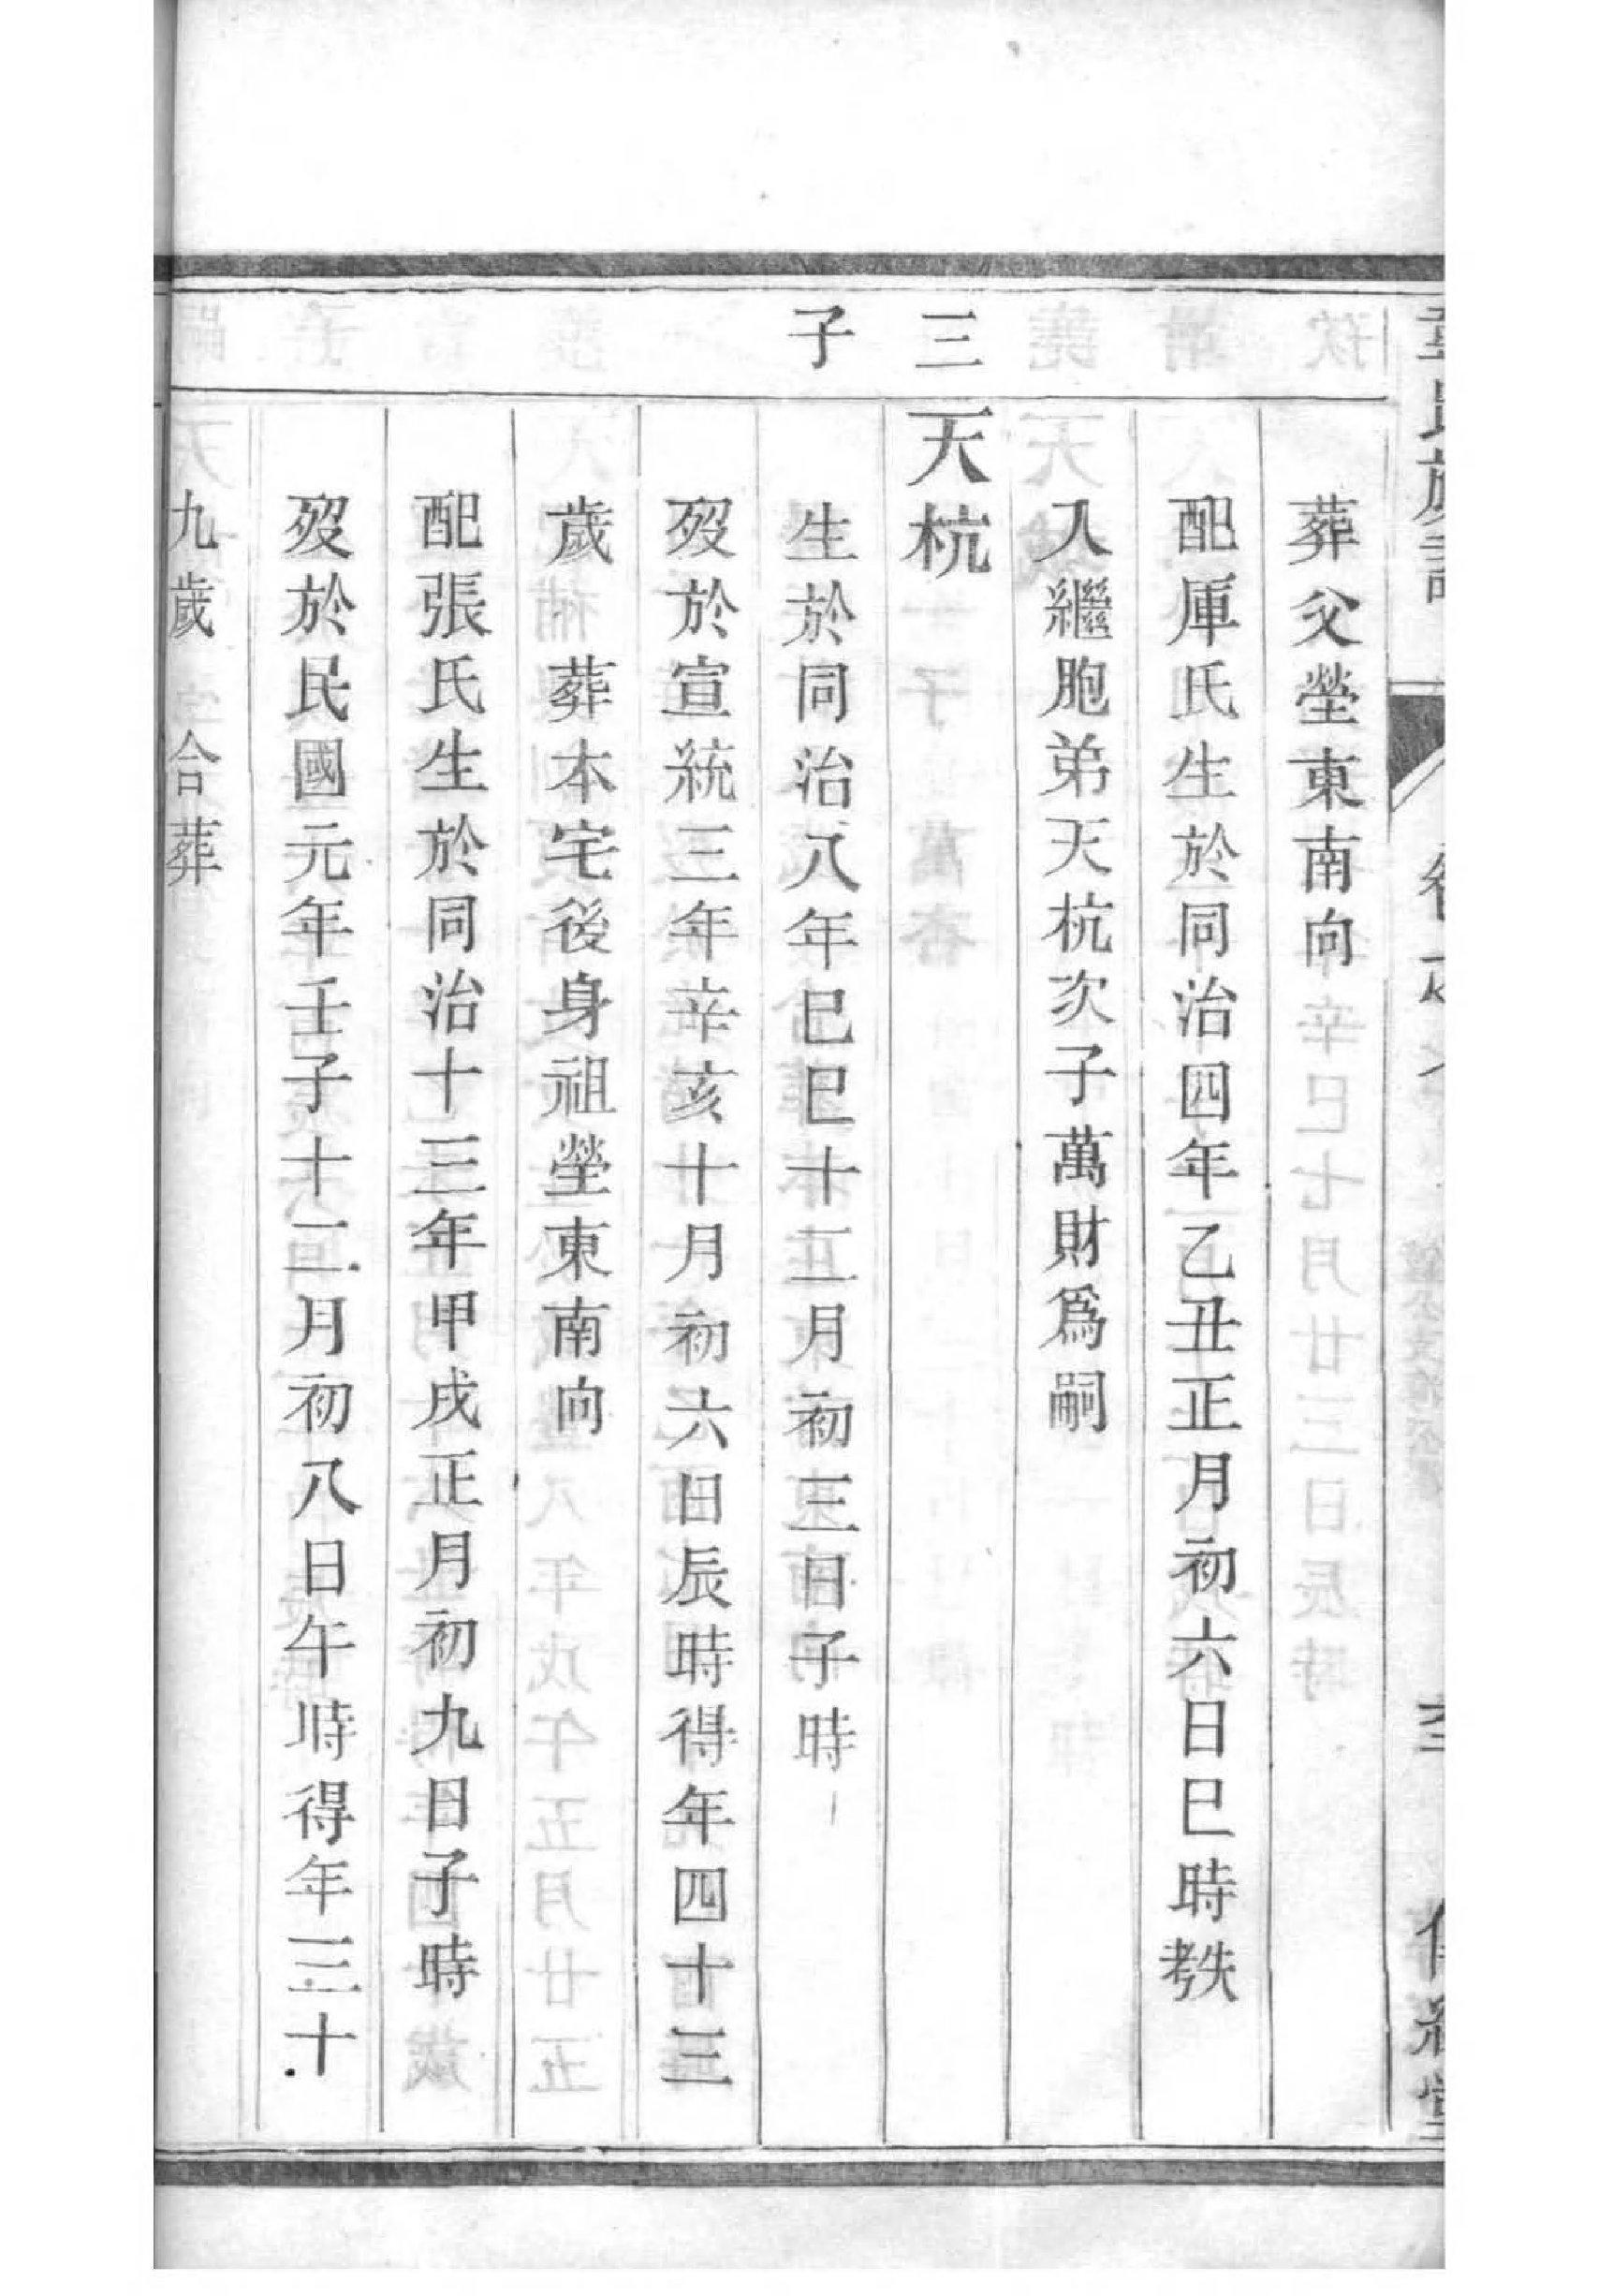 葬父塋東南向
配厙氏生於同治四年乙丑正月初六日巳時
入繼胞弟天杭次子萬財爲嗣
三子
天杭
生於同治八年巳巳十二月初三日子時
歿於宣統三年辛亥十月初六日辰時得年四十三
歲 葬本宅後身祖塋東南向
配張氏生於同治十三年甲戌正月初九日子時
歿於民國元年壬子十二月初八日午時得年三十
九歲 合葬